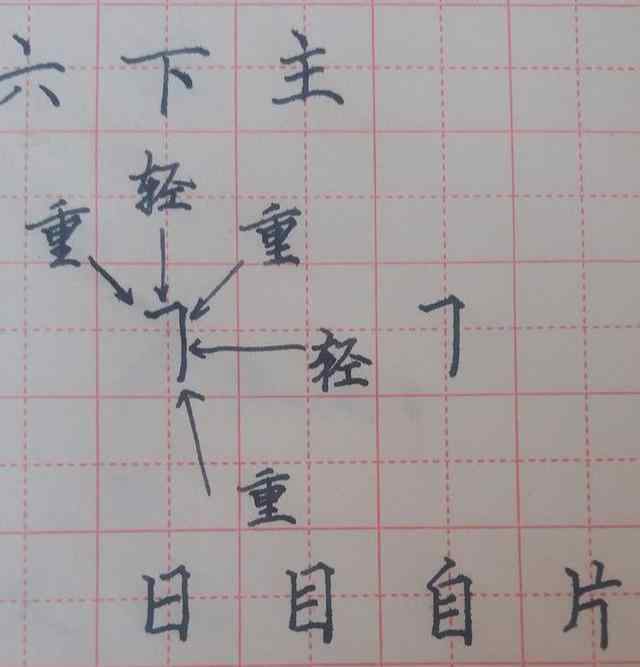 六 下 主
轻
重 重
𠃍 𠃍
轻
重
日 目 自 片